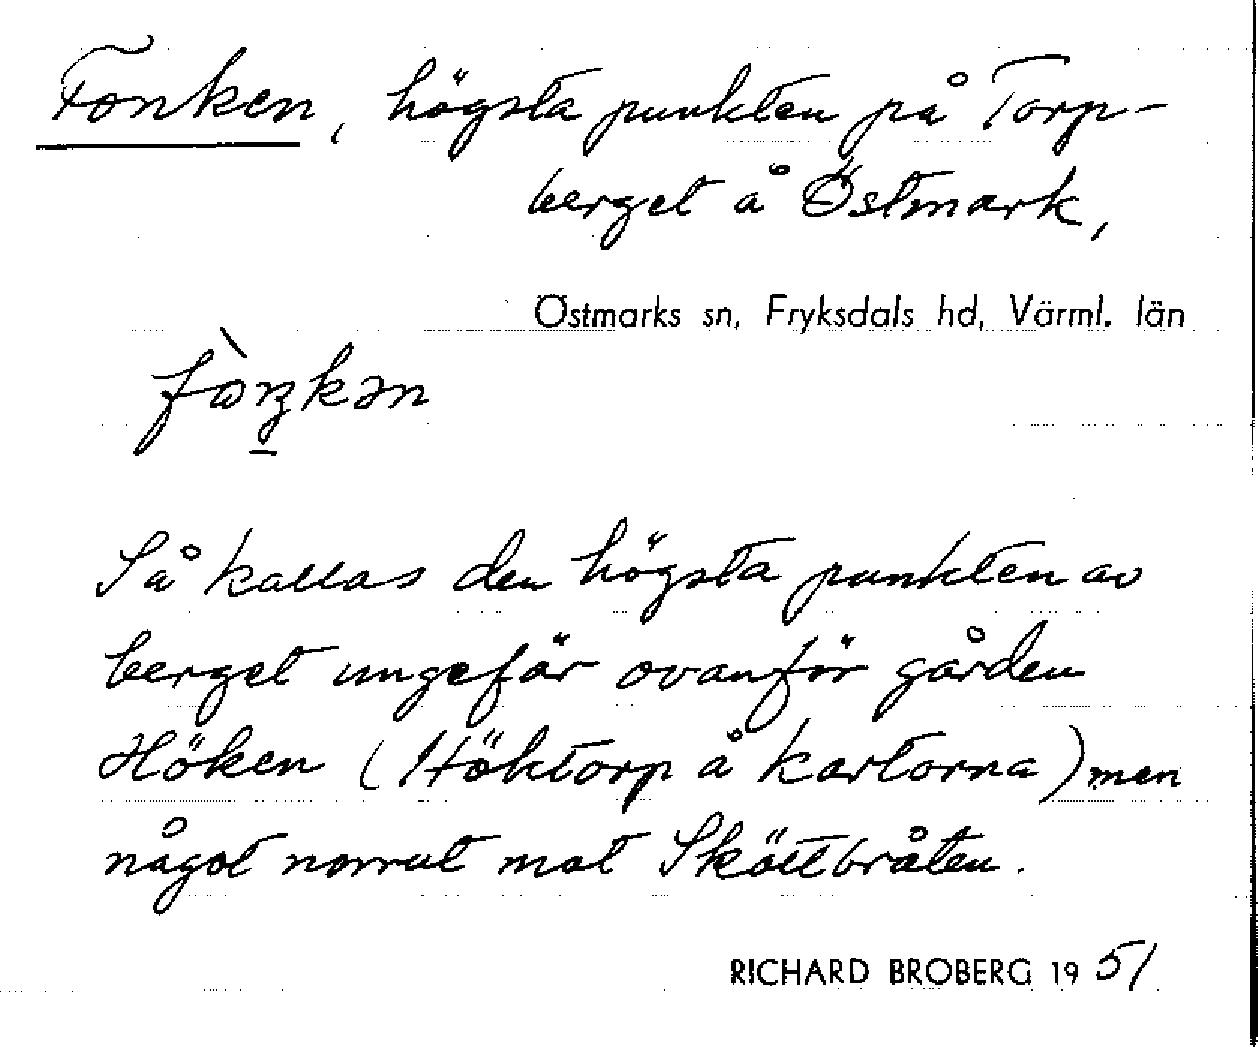 Fonken, högsta punkten på Torp-
berget å Östmark,
Östmarks sn, Fryksdals hd, Värml. län
Så kallas den högsta punkten av
berget ungefär ovanför gården
Höken (Höktorp å kartorna) men
något norrut mot Sköttbråten.
RICHARD BROBERG 1951